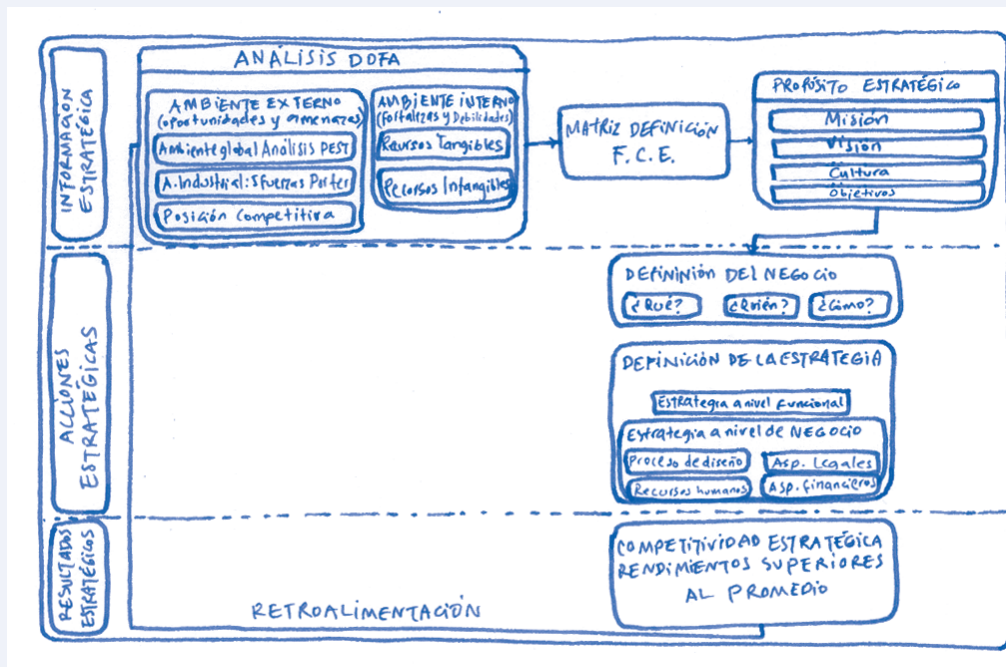 INFORMACIÓN
ESTRATÉGICA
ANÁLISIS DOFA
AMBIENTE EXTERNO
(oportunidades y amenazas)
Ambiente global Análisis PEST
A. Industrial: 5 fuerzas Porter
Posición Competitiva
AMBIENTE INTERNO
(Fortalezas y Debilidades)
Recursos Tangibles
Recursos Intangibles
MATRIZ DEFINICIÓN
F. C. E.
PROPÓSITO ESTRATÉGICO
Misión
Visión
Cultura
Objetivos
ACCIONES
ESTRATÉGICAS
DEFININIÓN DEL NEGOCIO
¿Qué?
¿Quién?
¿Cómo?
DEFINICIÓN DE LA ESTRATEGIA
Estrategia a nivel funcional
Estrategia a nivel de NEGOCIO
Proceso de diseño
Asp. Legales
Recursos humanos
Asp. financieros
RESULTADOS
ESTRATÉGICOS
COMPETITIVIDAD ESTRATÉGICA
RENDIMIENTOS SUPERIORES
AL PROMEDIO
RETROALIMENTACIÓN